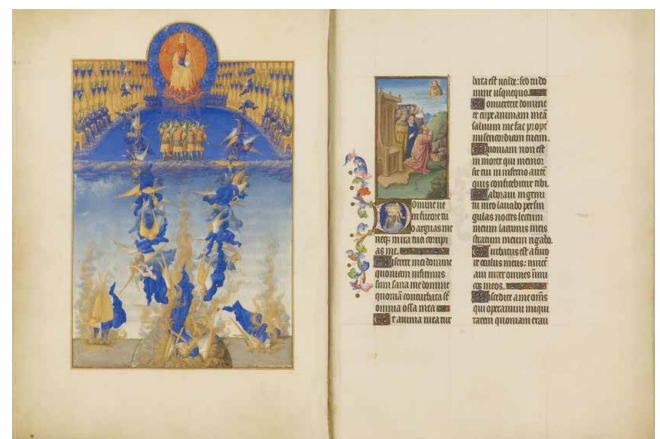 Domine ne
in furore tu
o arguas me
neqz in ira tua corripi
as me.
Miserere mei domine
quoniam infirmus
sum sana me domine
quoniā conturbata sūt
omnia ossa mea
Et anima mea tur
bata est valde: sed tu do
mine usquequo
Convertere domine
et eripe animam meā
salvum me fac propt
misericordiam tuam.
Quoniam non est
in morte qui memor
sit tui in inferno autē
quis confitebitur tibi.
Laboravi in gemi
tu meo lavabo per sin
gulas noctes lectum
meum lacrimis meis
stratum meum rigabo.
Turbatus est a furo
re oculus meus: invet
avi inter omnes inimi
cos meos.
Discedite a me oms̄
qui operamini iniqui
tatem quoniam exau